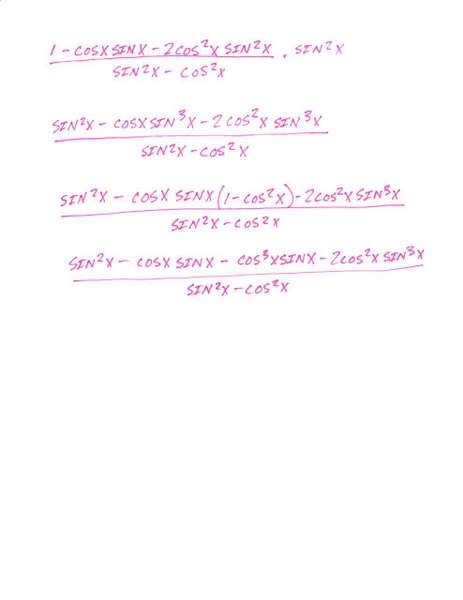 1 - COSX SINX - 2COS²X SIN²X / SIN²X - COS²X · SIN²X
SIN²X - COSX SIN³X - 2COS²X SIN³X / SIN²X - COS²X
SIN²X - COSX SINX(1-COS²X) - 2COS²X SIN³X / SIN²X - COS²X
SIN²X - COSX SINX - COS³XSINX - 2COS²X SIN³X / SIN²X - COS²X